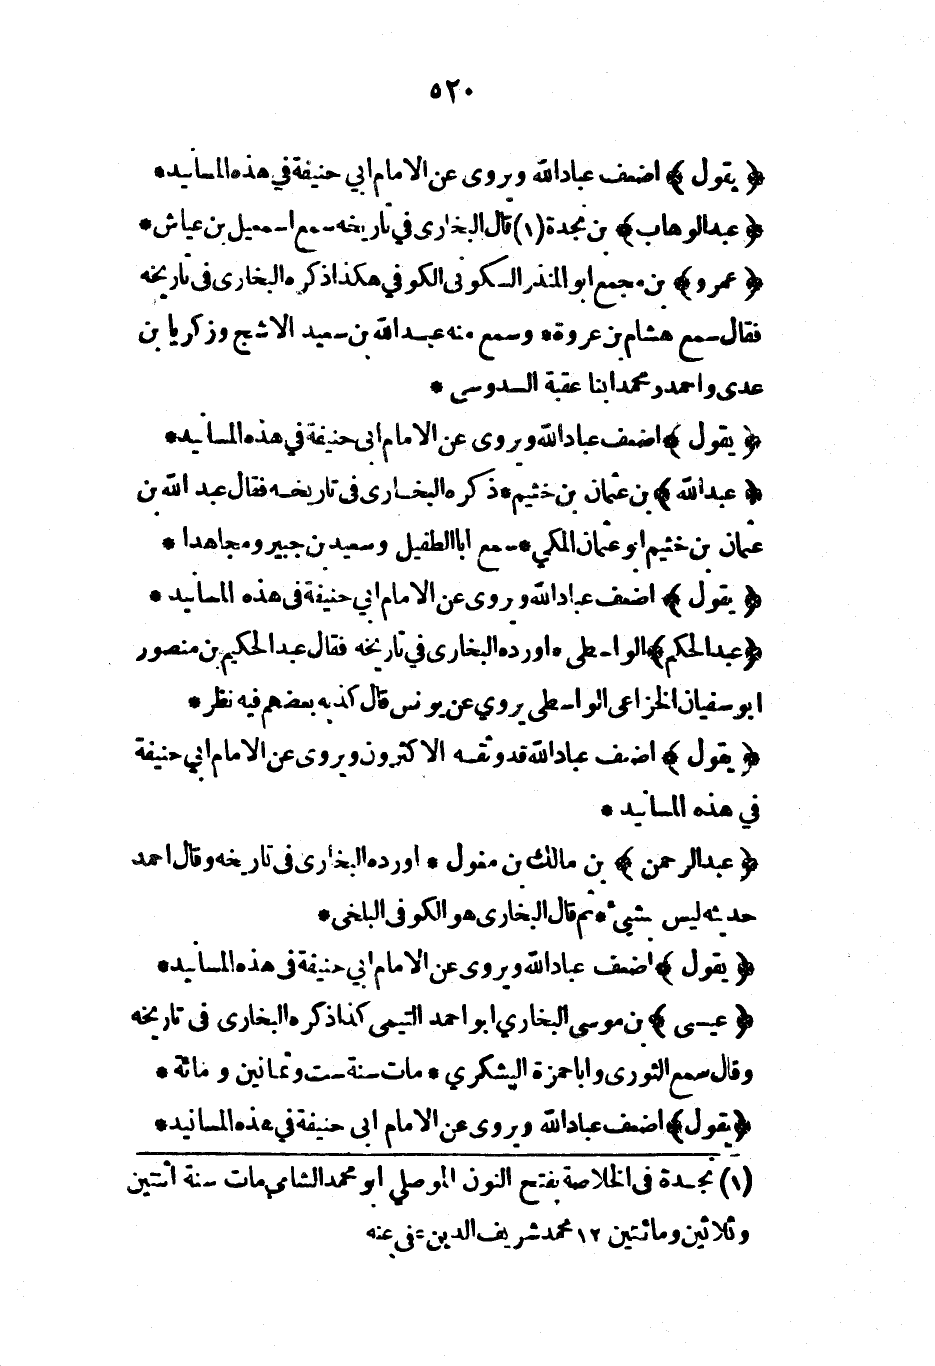 ٥٢٠
﴿ يقول ﴾ اضعف عباد الله ويروى عن الامام ابي حنيفة في هذه المسانيد *
﴿ عبد الوهاب ﴾ بن نجدة (١) قال البخارى في تاريخه سمع اسمعيل بن عياش *
﴿ عمرو ﴾ بن مجمع ابو المنذر السكونى الكوفي هكذا ذكره البخارى فى تاريخه
فقال سمع هشام بن عروة * وسمع منه عبد الله بن سعيد الاشج وزكريا بن
عدى واحمد ومحمد ابنا عقبة السدوسى *
﴿ يقول ﴾ اضعف عباد الله ويروى عن الامام ابى حنيفة في هذه المسانيد *
﴿ عبد الله ﴾ بن عثمان بن خثيم * ذكره البخارى فى تاريخه فقال عبد الله بن
عثمان بن خثيم ابو عثمان المكي * سمع ابا الطفيل وسعيد بن جبير ومجاهدا *
﴿ يقول ﴾ اضعف عباد الله ويروى عن الامام ابي حنيفة فى هذه المسانيد *
﴿ عبد الحكيم ﴾ الواسطى * اورده البخارى في تاريخه فقال عبد الحكيم بن منصور
ابو سفيان الخزاعى الواسطى يروي عن يونس قال كذبه بعضهم فيه نظر *
﴿ يقول ﴾ اضعف عباد الله قد وثقه الاكثرون ويروى عن الامام ابي حنيفة
في هذه المسانيد *
﴿ عبد الرحمن ﴾ بن مالك بن مغول * اورده البخارى فى تاريخه وقال احمد
حديثه ليس بشيئ * ثم قال البخارى هو الكوفى البلخى *
﴿ يقول ﴾ اضعف عباد الله ويروى عن الامام ابي حنيفة فى هذه المسانيد *
﴿ عيسى ﴾ بن موسى البخاري ابو احمد التيمى كذا ذكره البخارى فى تاريخه
وقال سمع الثورى وابا حمزة اليشكري * مات سنة ست وثمانين ومائة *
﴿ يقول ﴾ اضعف عباد الله ويروى عن الامام ابى حنيفة في هذه المسانيد *
(١) نجدة فى الخلاصة بفتح النون الموصلي ابو محمد الشامى مات سنة اثنتين
وثلاثين ومائتين ١٢ محمد شريف الدين عفى عنه